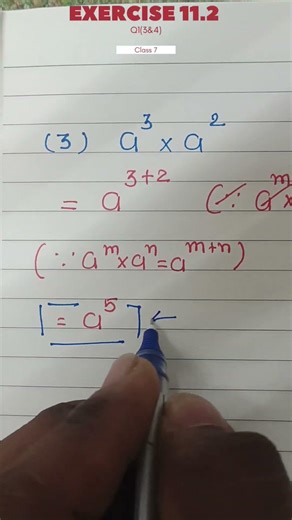 EXERCISE 11.2
Q1(3&4)
Class 7
(3) a³ × a²
= a³⁺² (∵ aᵐ ×
(∵ aᵐ × aⁿ = aᵐ⁺ⁿ)
= a⁵ ←